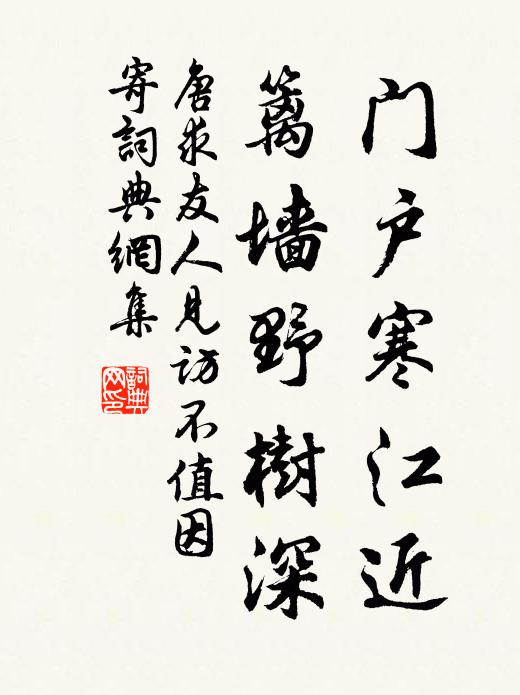 门户寒江近
篱墙野樹深
唐求友人見訪不值因
寄詞典網集
詞典
网印